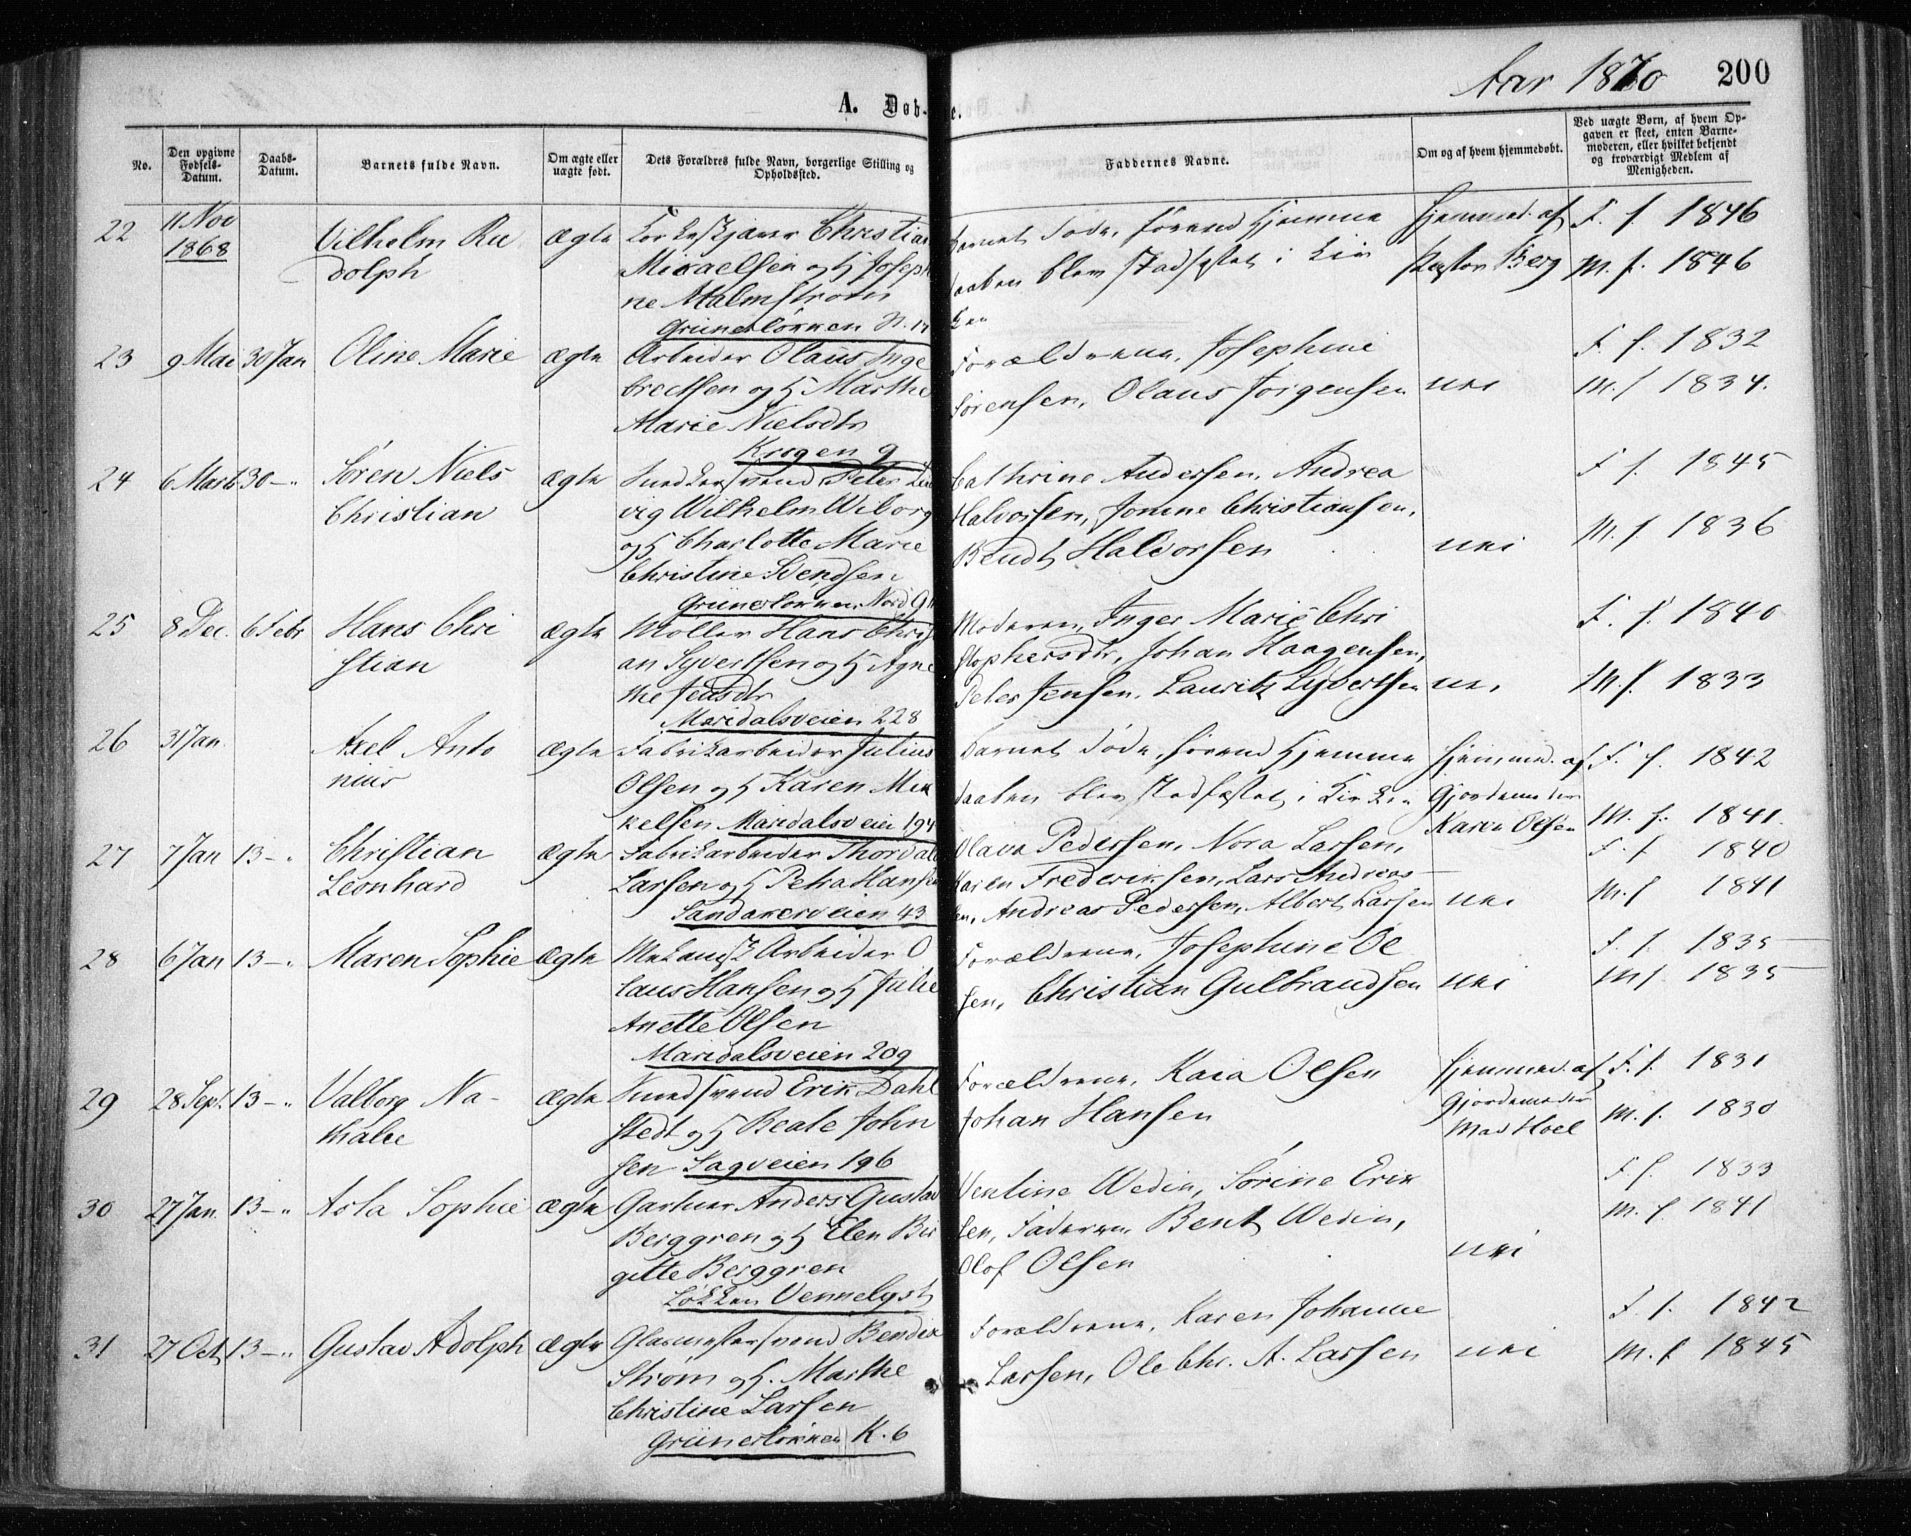 Aar 1870 200
A. Døb- e.
No.
Den opgivne Fødsels-Datum.
Daabs-Datum.
Barnets fulde Navn.
Om ægte eller uægte født.
Dets Forældres fulde Navn, borgerlige Stilling og Opholdssted.
Faddernes Navne.
Om og af hvem hjemmedøbt.
Ved uægte Børn, af hvem Opgaven er skeet, enten Barnemoderen, eller hvilket bekjendt og troværdigt Medlem af Menigheden.
22 11 Nov 1868
Vilhelm Ru
dolph
ægte
Christian
Mikaelsen og H Josephi
ne Malmstrøm
Grünerløkken N. 17
Barnet døde, førend hjemme
daaben blev stadfæstet i Kir
ken
Hjemmed. af
Pastor Berg
F. f. 1846
M. f. 1846
23 9 Mai 30 Jan Oline Marie ægte
Arbeider Olaus Inge
brectsen og H Marthe
Marie Nielsdtr
Krogen 9
Forældrene, Josephine
Sørensen, Olaus Jørgensen
nei
F. f. 1832
M. f 1834.
24 6 Marts 30 -"
Søren Niels
Christian
ægte
Snedkersvend Peter Lud
vig Wilhelm Wiborg
og H Charlotte Marie
Christine Svendsen
Grünerløkken Nord 9
Cathrine Andersen, Andrea
Halvorsen, Jonine Christiansen,
Bendt Halvorsen
nei
F f. 1845
M. f. 1836
25 8 Dec. 6 Febr
Hans Chri
stian
ægte
Møller Hans Christi
an Syvertsen og H Agne
the Jensdtr
Maridalsveien 228
Moderen, Inger Marie Chri
stophersdtr, Johan Haagensen,
Peter Jensen, Lauritz Syvertsen
nei
F. f. 1840
M. f. 1833
26 31 Jan.
Axel Anto
nius
ægte
Fabrikarbeider Julius
Olsen og H Karen Mik
kelsen Maridalsveien 194
Barnet døde, førend hjemme
daaben blev stadfæstet i Kirken
Hjemmed. af
Gjordemoder
Karen Olsen
F. f. 1842
M. f. 1841.
27 7 Jan 13 -"
Christian
Leonhard
ægte
Fabrikarbeider Thorvald
Larsen og H Petra Hansen
Sandakerveien 43
Olava Pedersen, Nora Larsen,
Karen Frederiksen, Lars Andreas
en, Andreas Pedersen, Albert Larsen
nei
F. f 1840
M. f 1841
28 6 Jan 13 -" Maren Sophie ægte
Mekanisk Arbeider O
laus Hansen og H Julie
Anette Olsen
Maridalsveien 209
Forældrene, Josephine Ol
sen, Christian Gulbrandsen
nei
F. f. 1835
M f. 1835
29 28 Sept. 13 -"
Valborg Na-
thalie
ægte
Smedsvend Erik Dahl
stedt og H Beate John
sen Sagveien 196
Forældrene, Kaia Olsen
Johan Hansen
Hjemmed. af
Gjordemoder
Mad Hoel
F. f. 1831
M. f. 1830
30 27 Jan. 13 -" Asta Sophie ægte
Gartner Anders Gustav
Berggren og H Elen Bir
gitte Berggren
Løkken Vennelyst
Ventine Wedin, Sørine Erik
sen, Faderen Bent Wedin,
Olof Olsen
nei
F f. 1833
M. f. 1841
31 27 Oct 13 -" Gustav Adolph ægte
Glasmestersvend Bendix
Strøm og H. Marthe
Christine Larsen
Grünerløkken K. 6
Forældrene, Karen Johanne
Larsen, Ole Chr. A. Larsen
nei
F. f. 1842
M. f 1845